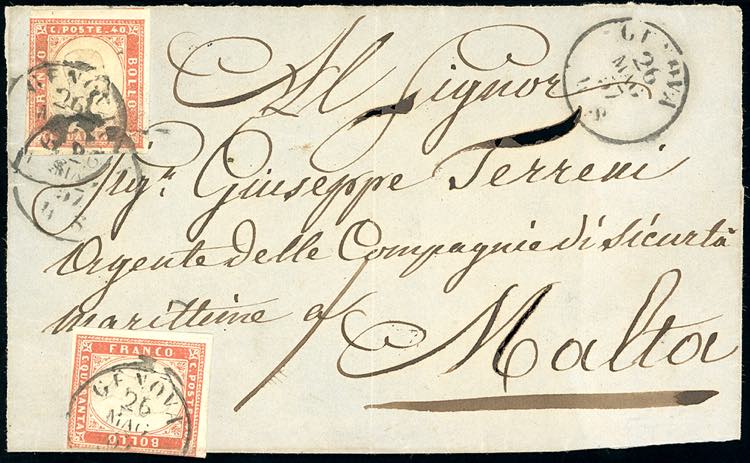 C. POSTE. 40
FRANCO
BOLLO
GENOVA
26
MAG
57
GENOVA
26
MAG
57
Al Signor
Sigr. Giuseppe Terreni
Agente delle Compagnie di Sicurtà
marittime a
Malta
FRANCO
C. POSTE
C. QUARANTA
BOLLO
GENOVA
26
MAG